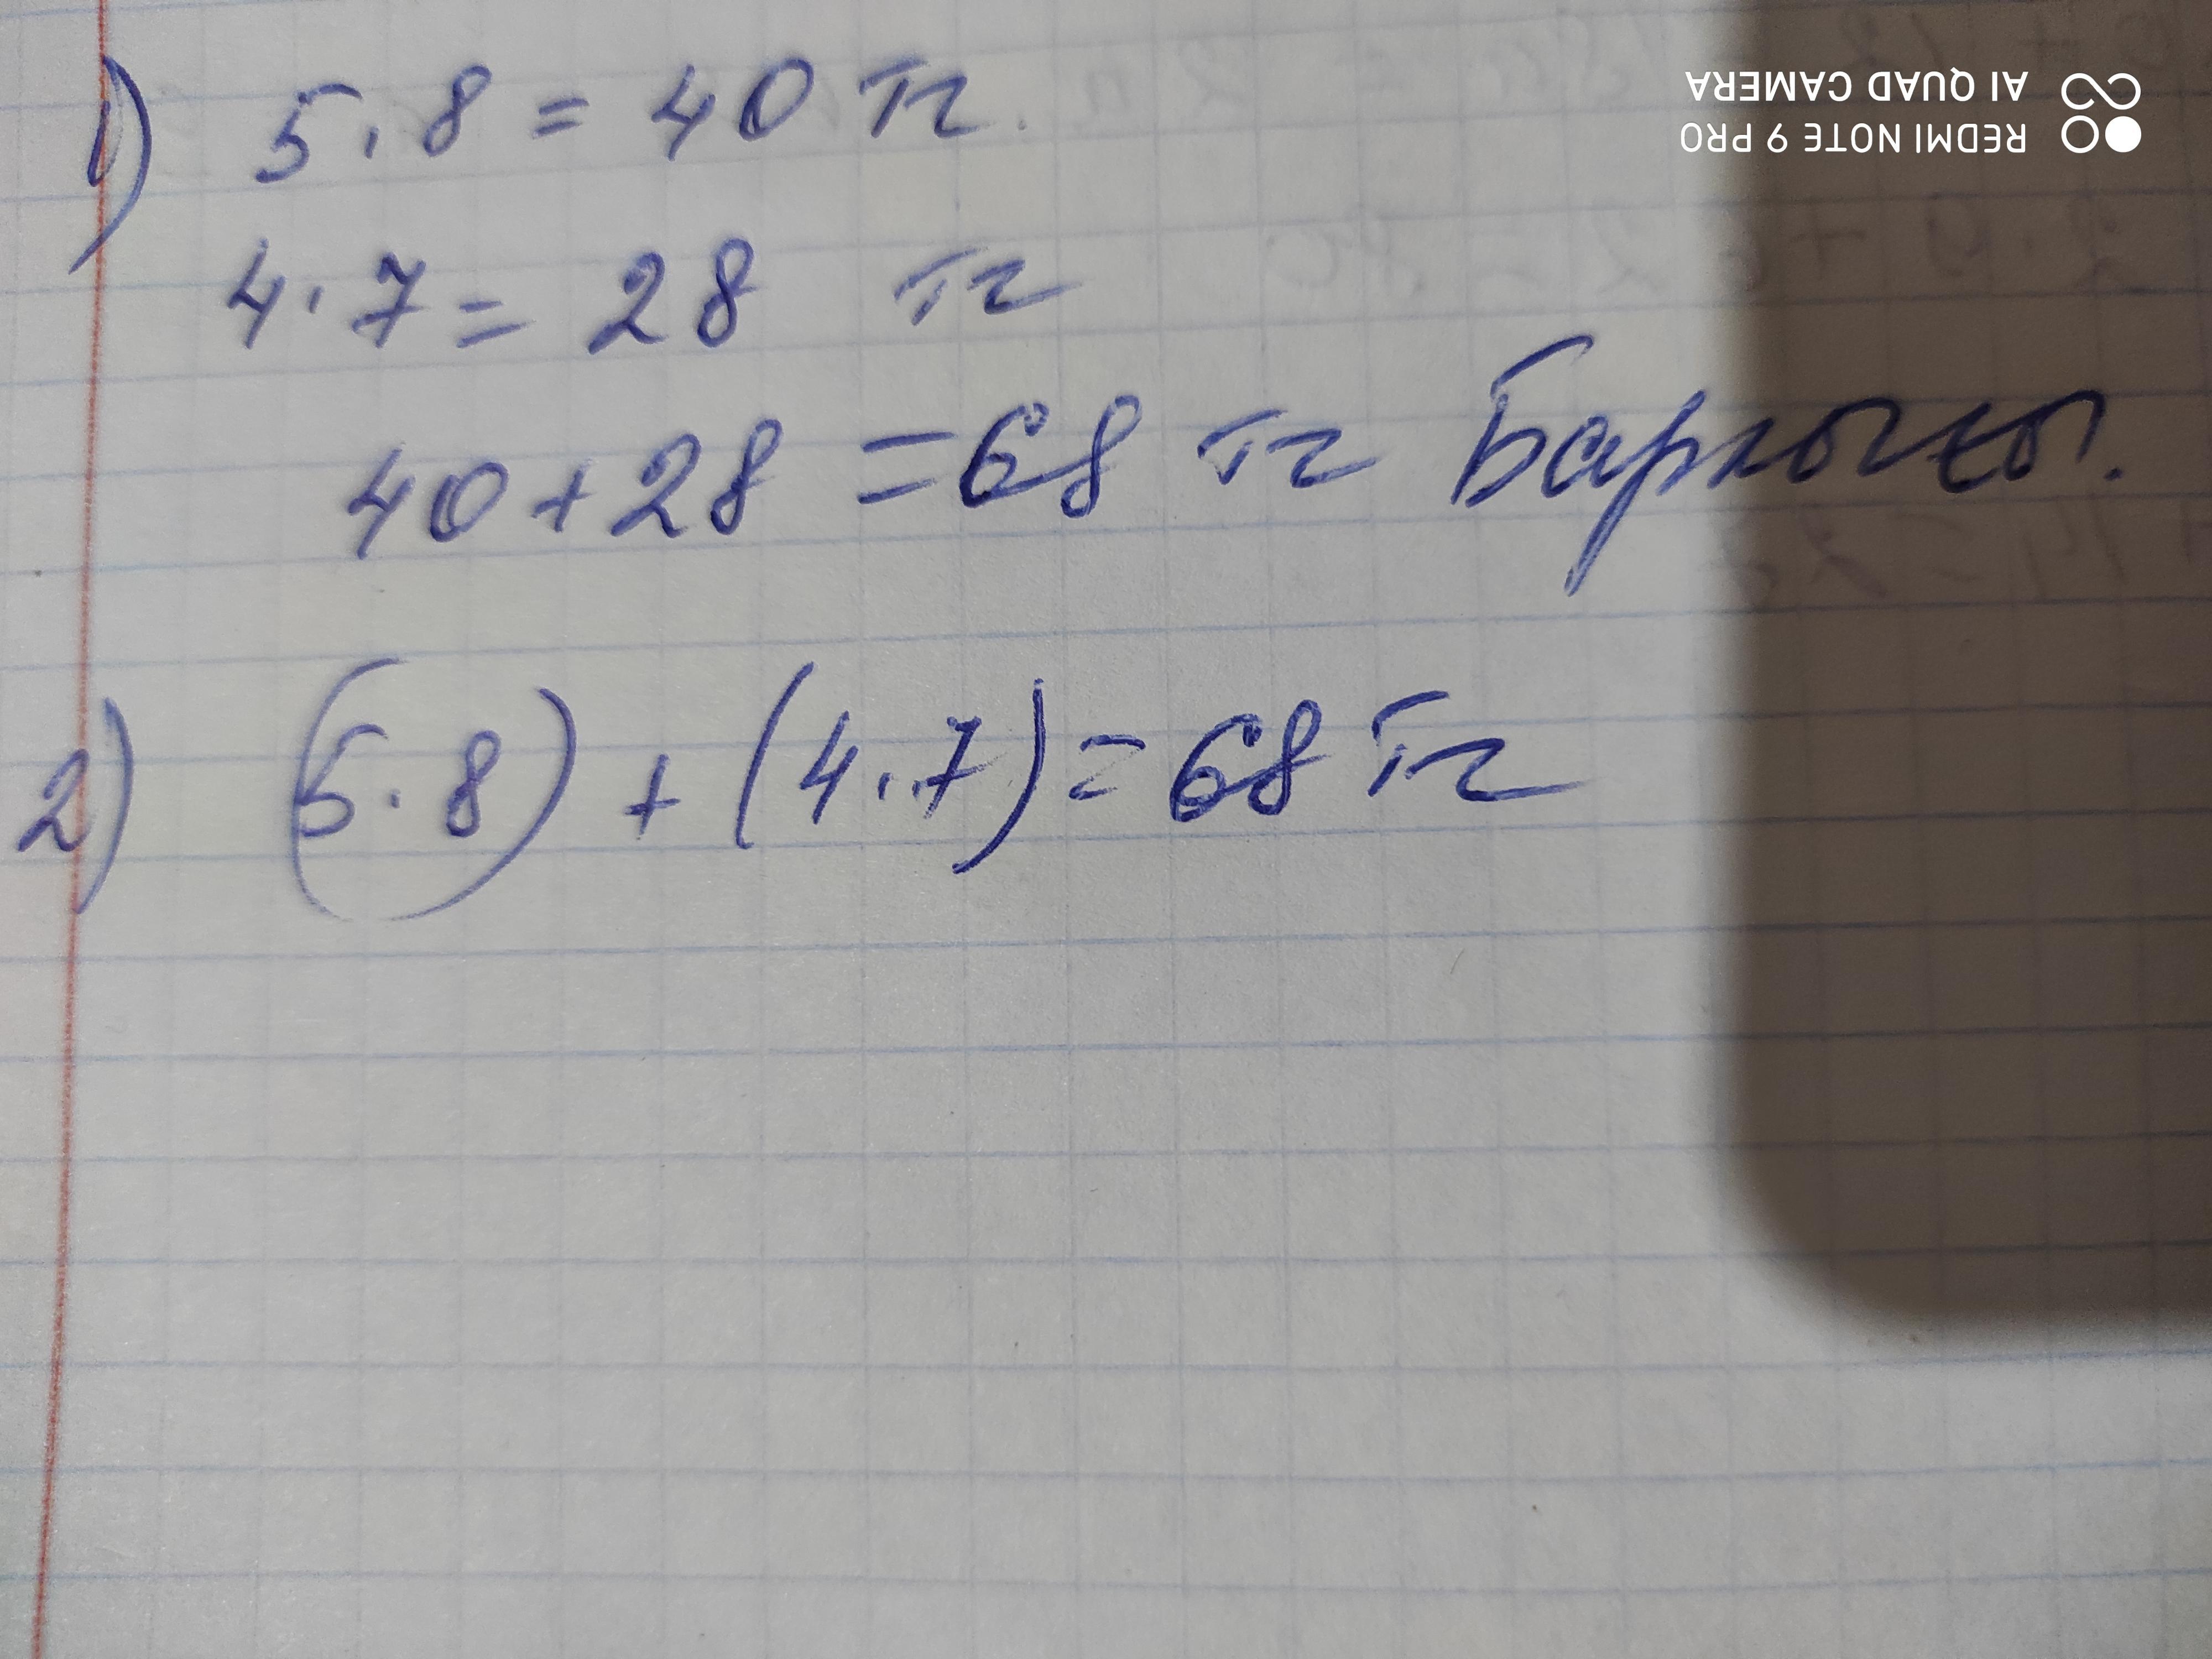 1) 5·8=40 тг.
4·7=28 тг
40+28=68 тг Барлығы.
2) (5·8)+(4·7)=68 тг
REDMI NOTE 9 PRO
AI QUAD CAMERA